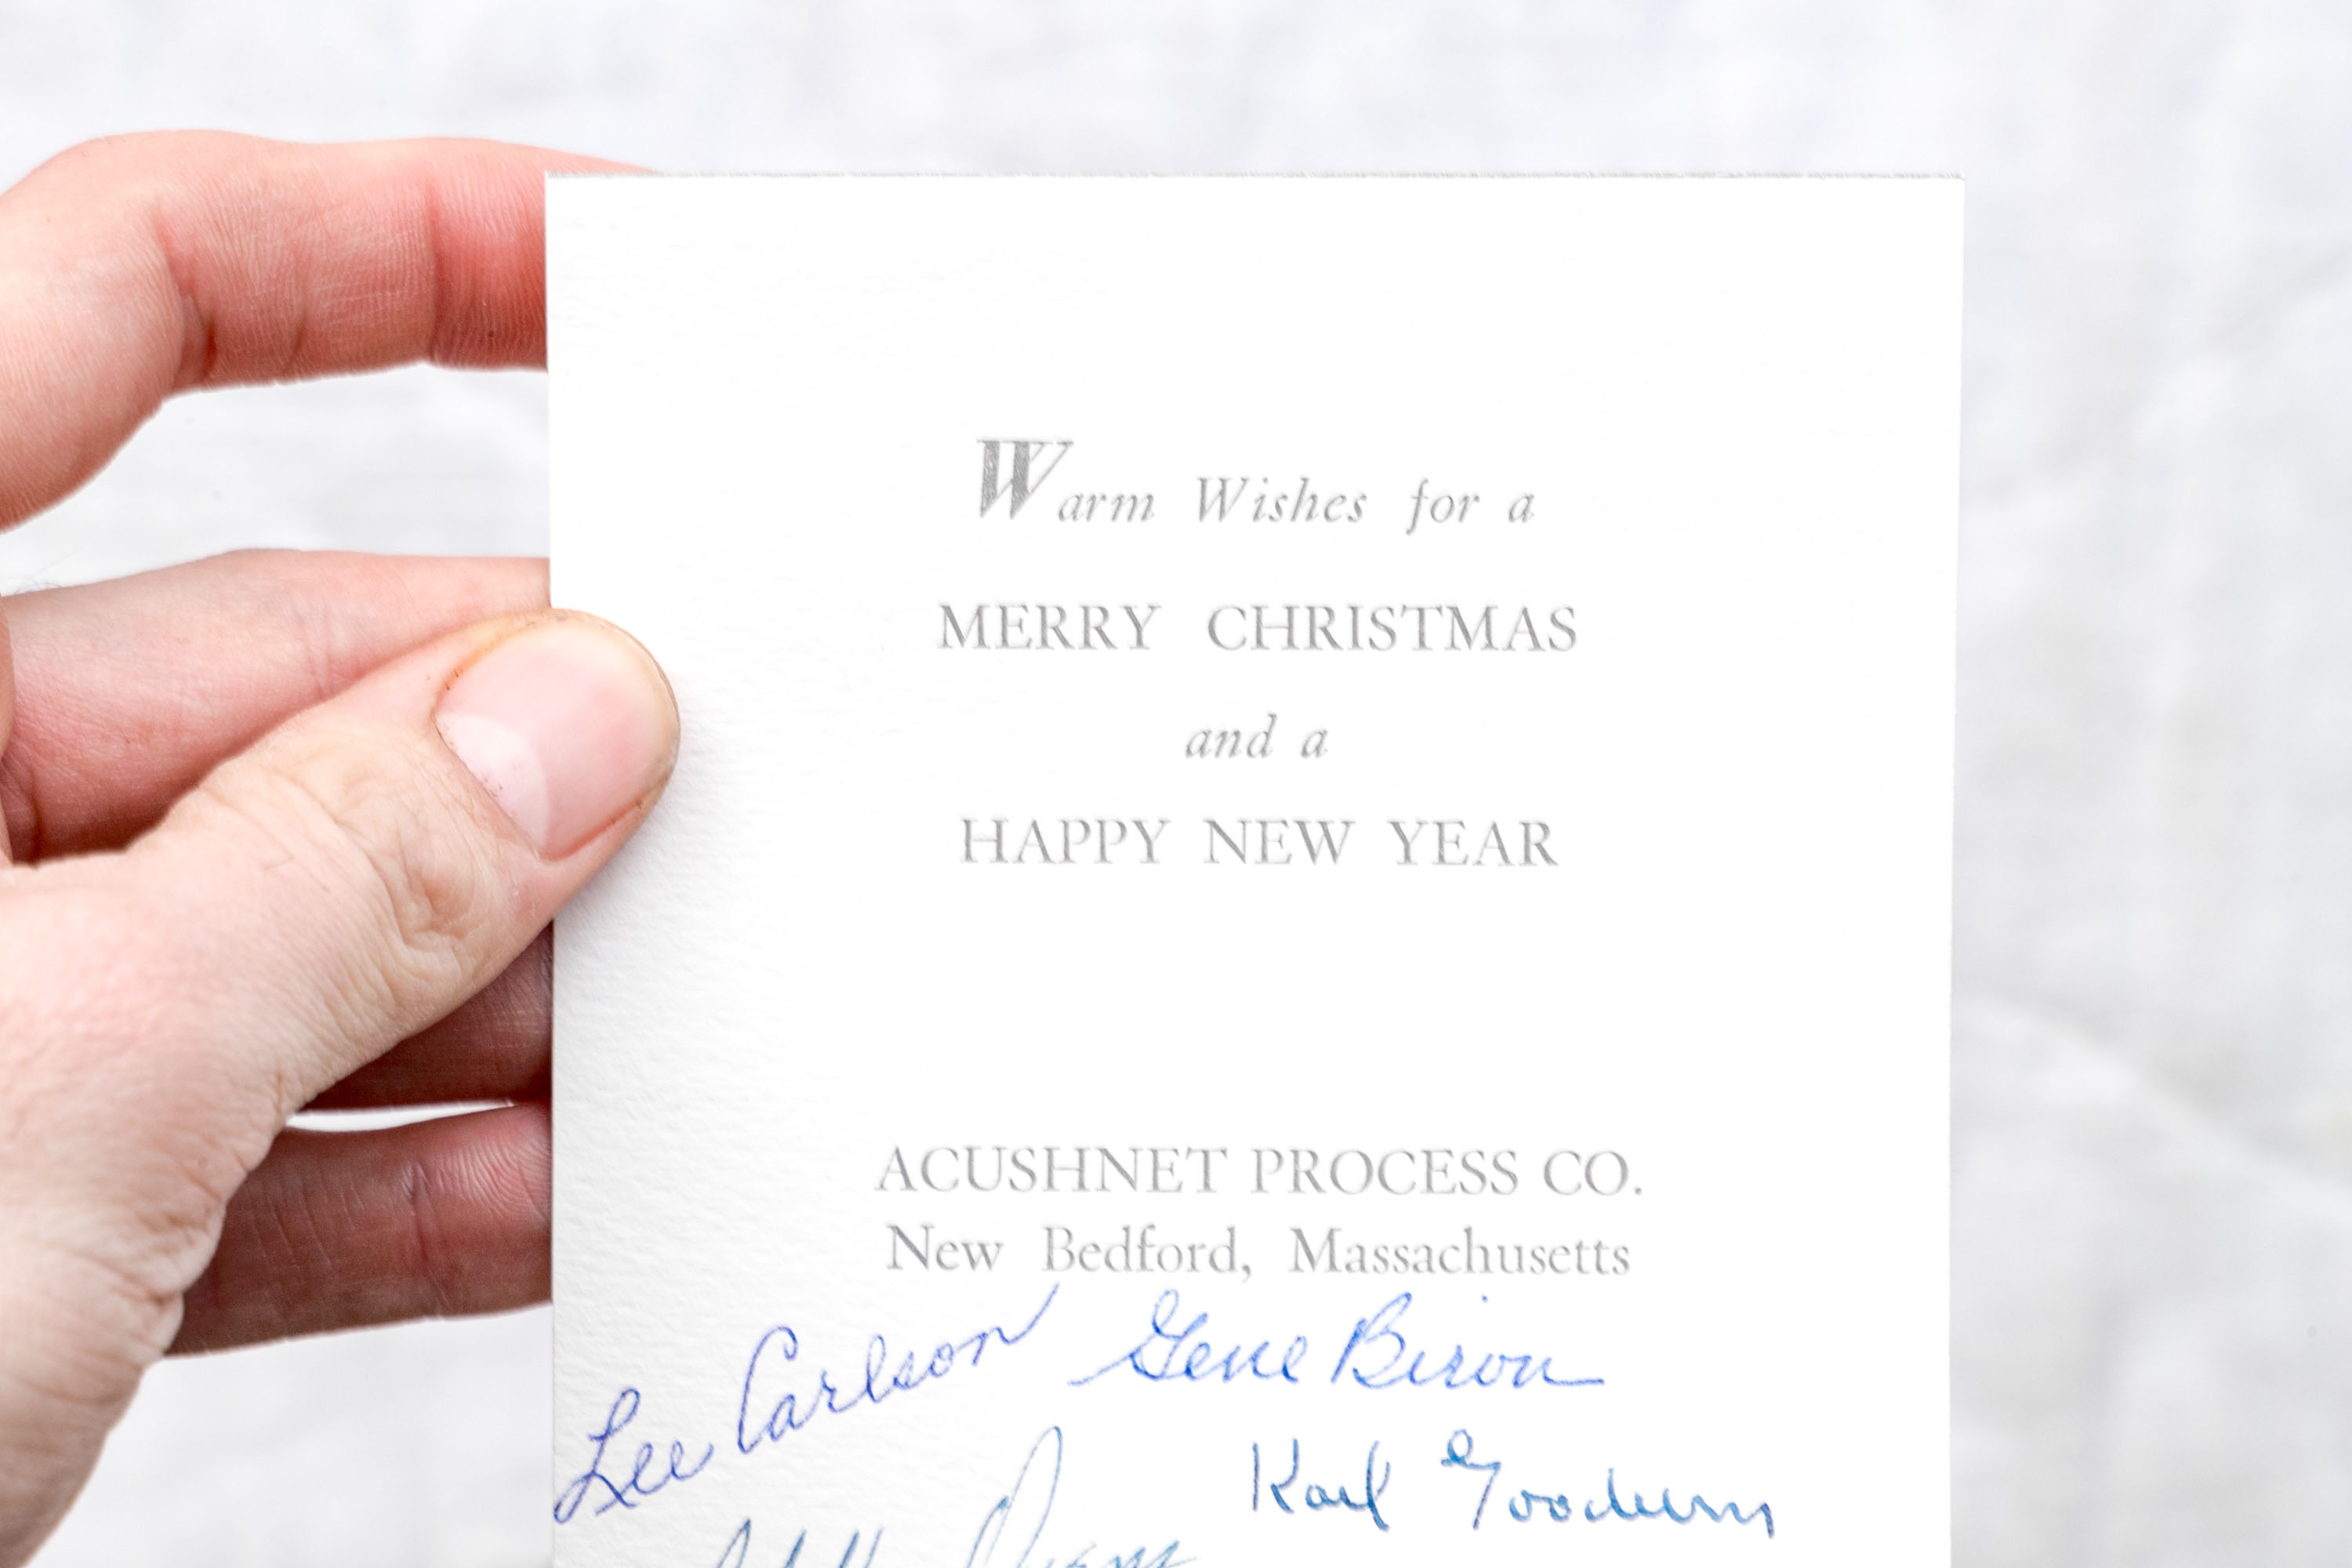 Warm Wishes for a
MERRY CHRISTMAS
and a
HAPPY NEW YEAR
ACUSHNET PROCESS CO.
New Bedford, Massachusetts
Lee Carlson Gene Biron
Karl